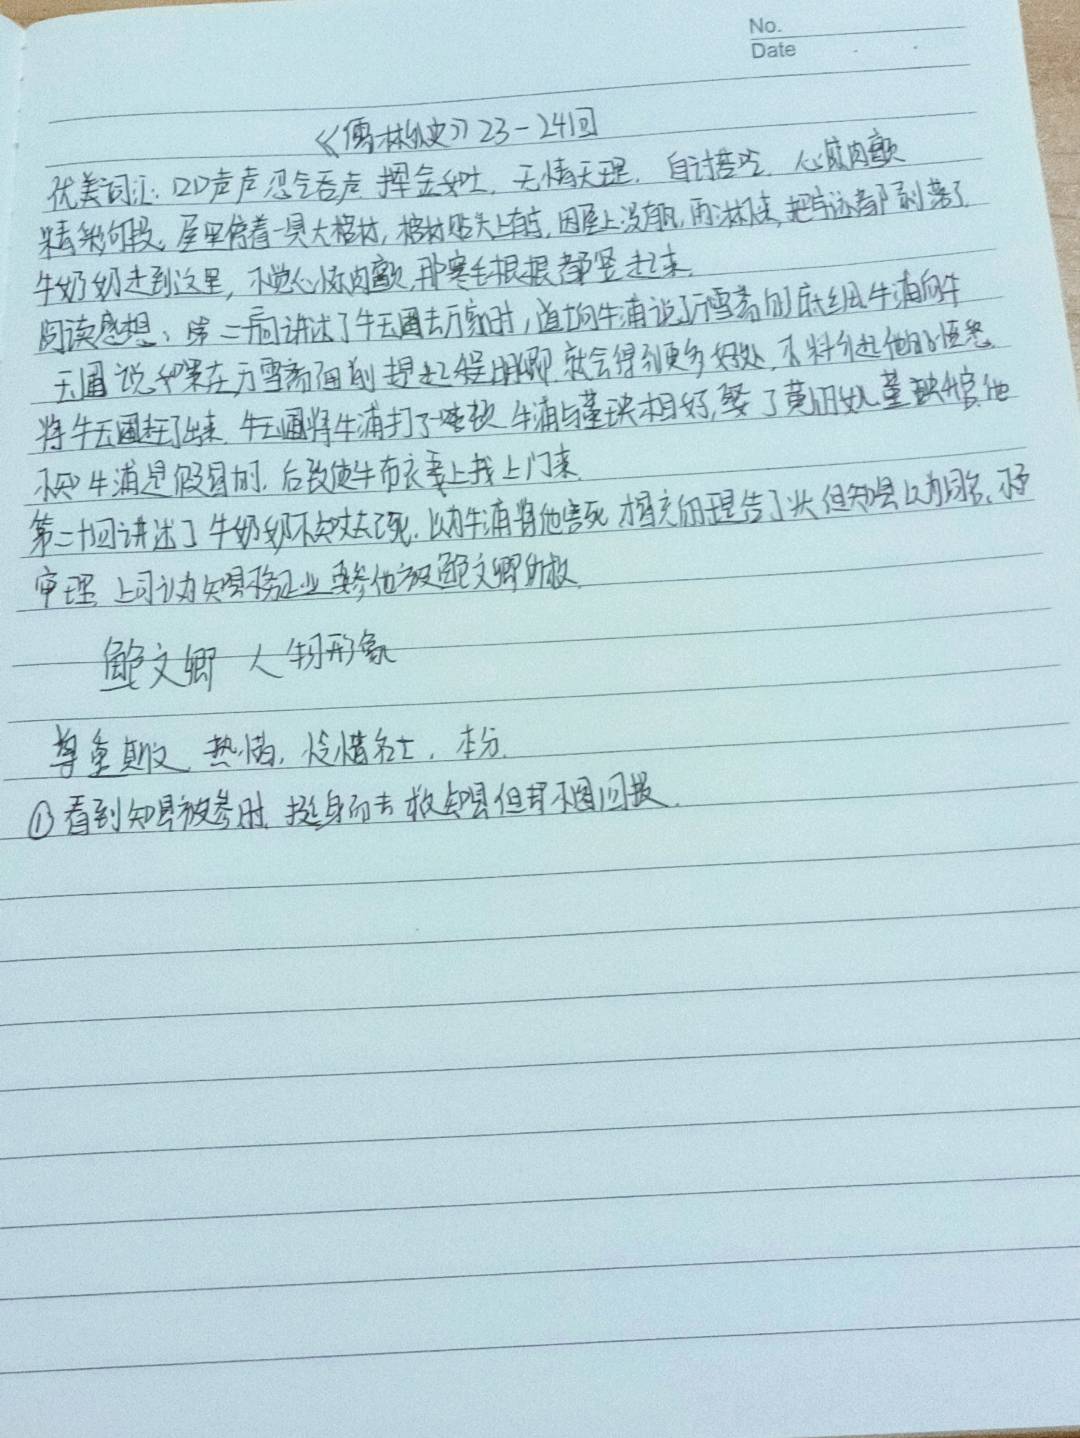 No.
Date
《儒林外史》23-24回
优美词汇: 口口声声 忍气吞声 挥金如土. 无情无理. 自讨苦吃. 心惊肉颤
精彩句段: 屋里停着一具大棺材, 棺材贴头上有字, 因屋上没有瓦, 雨淋下来, 把字迹都剥落了
牛奶奶走到这里, 不觉心惊肉颤, 那寒毛根根都竖起来.
阅读感想: 第二十三回讲述了牛玉圃去万家时, 道士向牛浦说了万雪斋的底细. 牛浦向牛
玉圃说 如果在万雪斋面前提起程明卿 就会得到更多好处, 不料引起他的怒
将牛玉圃赶了出来. 牛玉圃将牛浦打了 牛浦与董瑛相好, 娶了黄 董瑛升官 他
不知牛浦是假冒的. 后致使牛布衣妻上找上门来.
第二十四回讲述了牛奶奶不知丈夫已死. 以为牛浦将他害死 告了状 但知县以为同名, 不予
审理 上司认为知县不务正业 要参他 被鲍文卿所救.
鲍文卿 人物形象
尊重 热情, 怜惜名士, 本分.
①看到知县被参时. 挺身而去救知县但却不图回报.